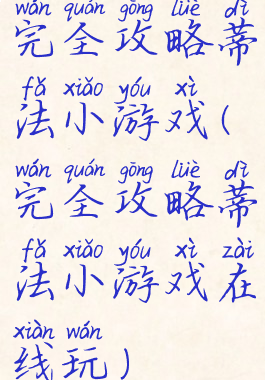 wán quán gōng lüè dì
完全攻略蒂
fǎ xiǎo yóu xì
法小游戏(
wán quán gōng lüè dì
完全攻略蒂
fǎ xiǎo yóu xì zài
法小游戏在
xiàn wán
线玩)